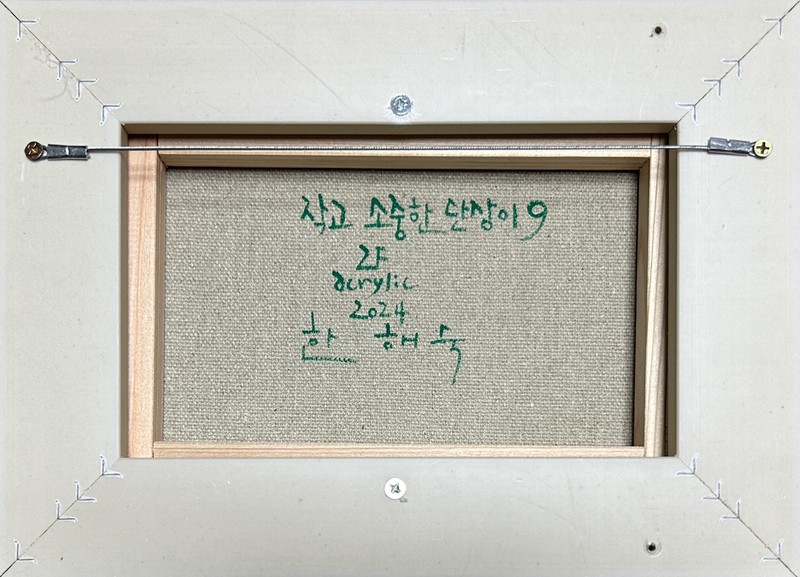 작고 소중한 단상이9
2F
acrylic
2024
한 해숙